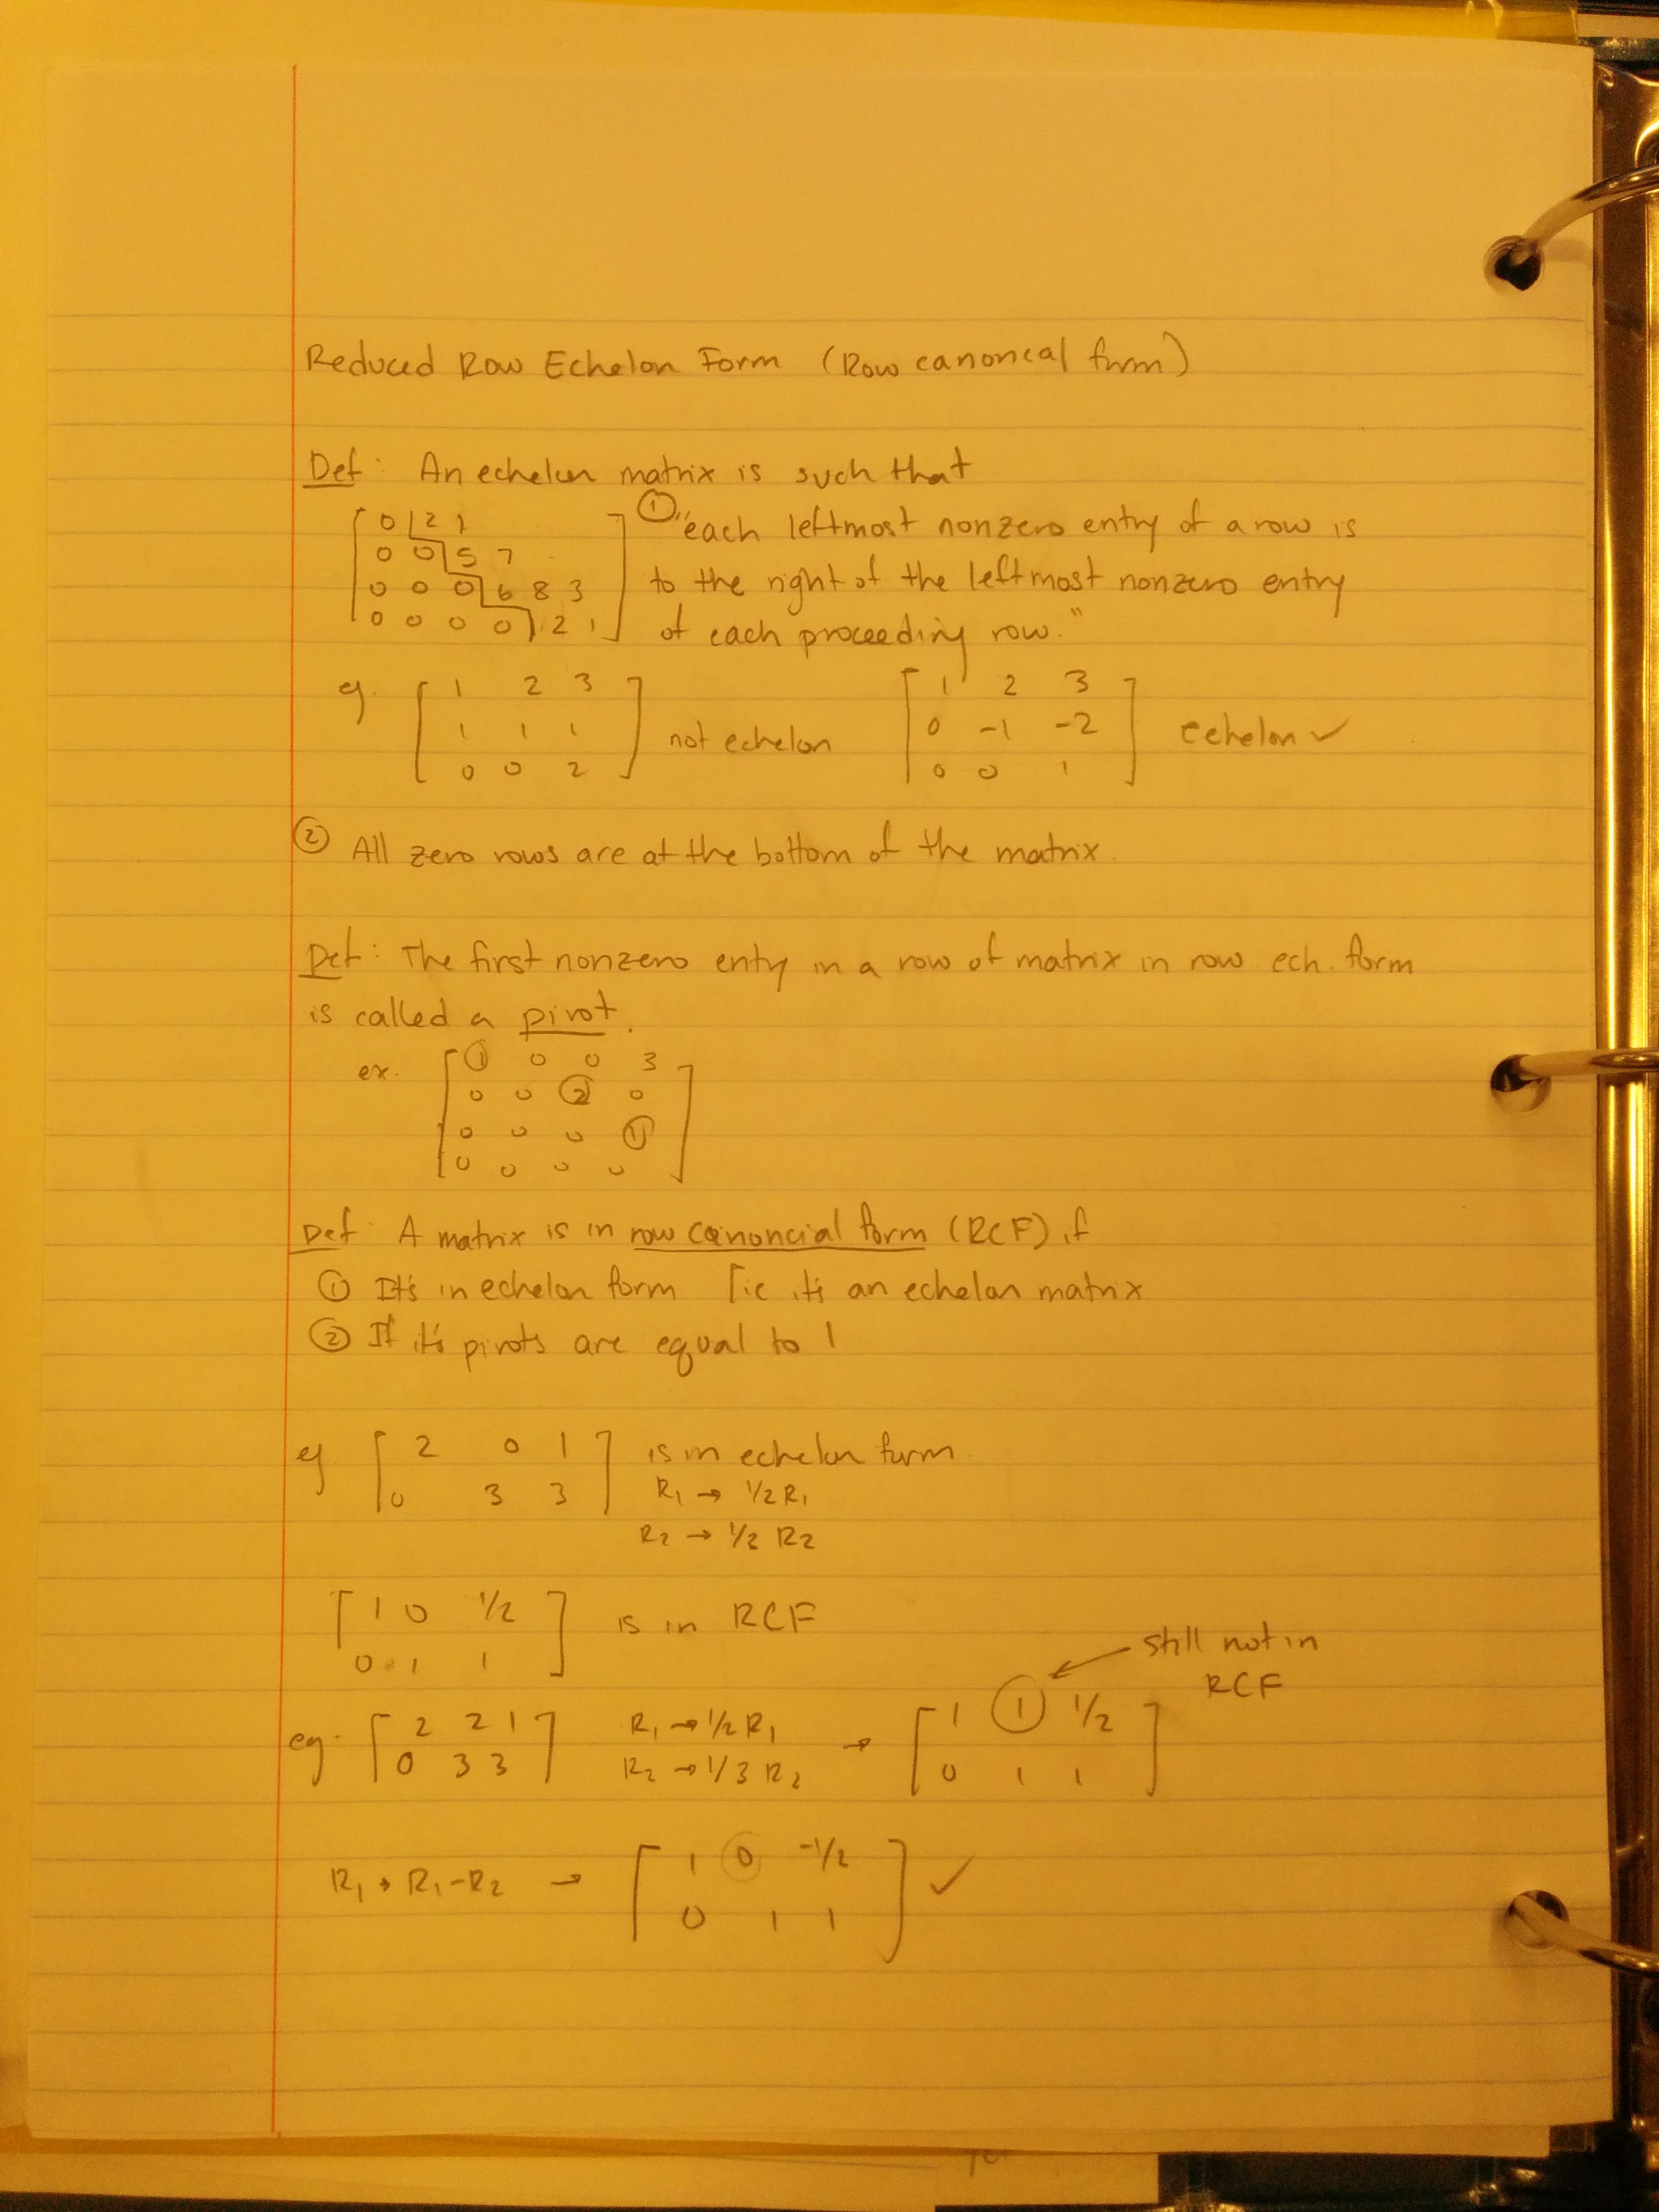 Reduced Row Echelon Form (Row canonical form)
Def: An echelon matrix is such that
[ 0 2 1
0 0 5 7
0 0 0 6 8 3
0 0 0 0 2 1 ]
① "each leftmost nonzero entry of a row is
to the right of the leftmost nonzero entry
of each proceeding row."
eg. [ 1 2 3
1 1 1
0 0 2 ] not echelon
[ 1 2 3
0 -1 -2
0 0 1 ] echelon ✓
② All zero rows are at the bottom of the matrix.
Def: The first nonzero entry in a row of matrix in row ech. form
is called a pivot.
ex. [ ① 0 0 3
0 0 ② 0
0 0 0 ①
0 0 0 0 ]
Def: A matrix is in row canoncial form (RCF) if
① It's in echelon form [ie it's an echelon matrix
② If it's pivots are equal to 1
eg [ 2 0 1
0 3 3 ] is in echelon form.
R1 → 1/2 R1
R2 → 1/3 R2
[ 1 0 1/2
0 1 1 ] is in RCF
still not in
RCF
eg. [ 2 2 1
0 3 3 ]
R1 → 1/2 R1
R2 → 1/3 R2
→ [ 1 ① 1/2
0 1 1 ]
R1 → R1-R2 → [ 1 0 -1/2
0 1 1 ] ✓